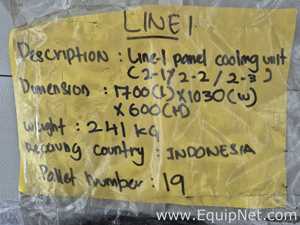 LINE 1
Description : Line-1 panel cooling unit
(2-1/2-2/2-3)
Dimension : 1700(L)X1030(W)
X600(H)
Weight : 241 kg
country : INDONESIA
Pallet number : 19
www.EquipNet.com